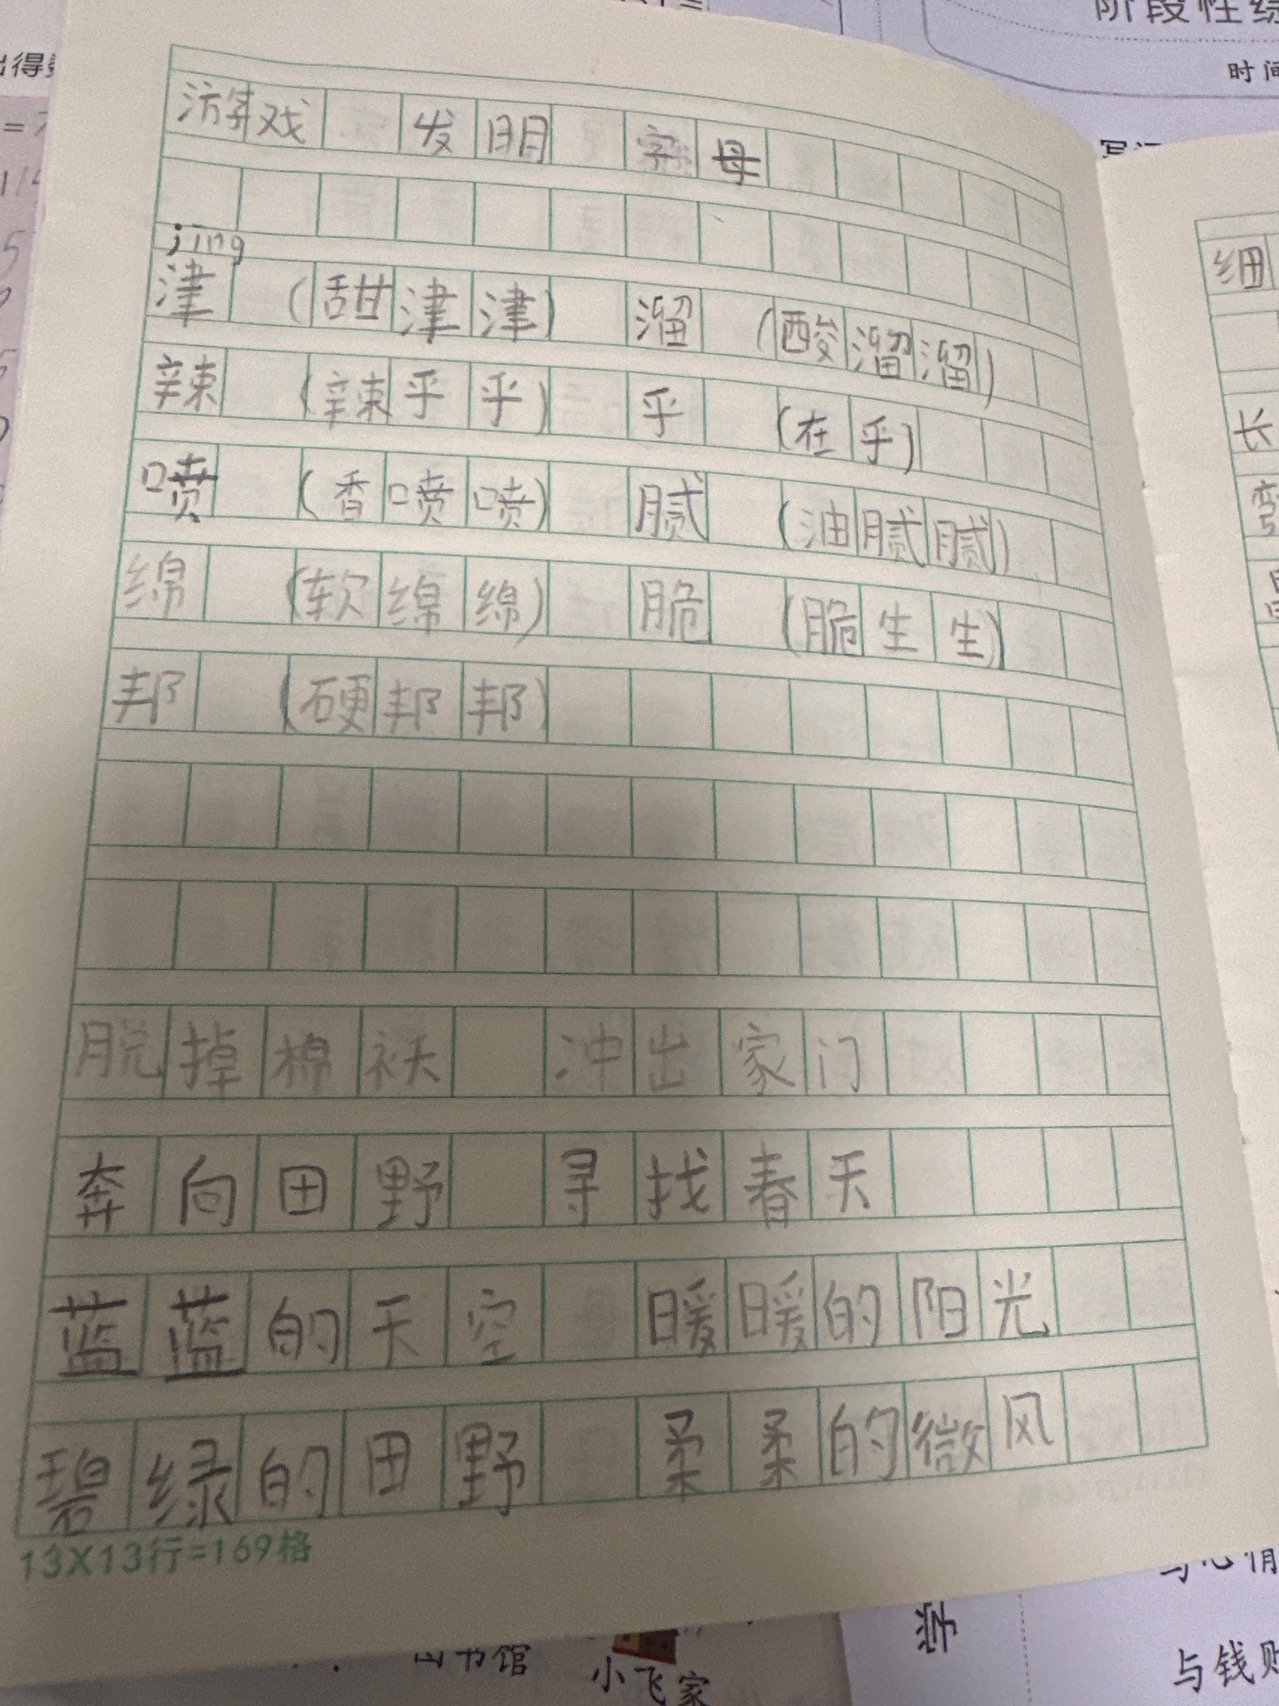 阶段性综
时间
出得数
游戏 发明 字母
jing
津 (甜津津) 溜 (酸溜溜)
辣 (辣乎乎) 乎 (在乎)
喷 (香喷喷) 腻 (油腻腻)
绵 (软绵绵) 脆 (脆生生)
邦 (硬邦邦)
脱掉棉袄 冲出家门
奔向田野 寻找春天
蓝蓝的天空 暖暖的阳光
碧绿的田野 柔柔的微风
13X13行=169格
细
长
弯
书馆
小飞家
与心情
与钱